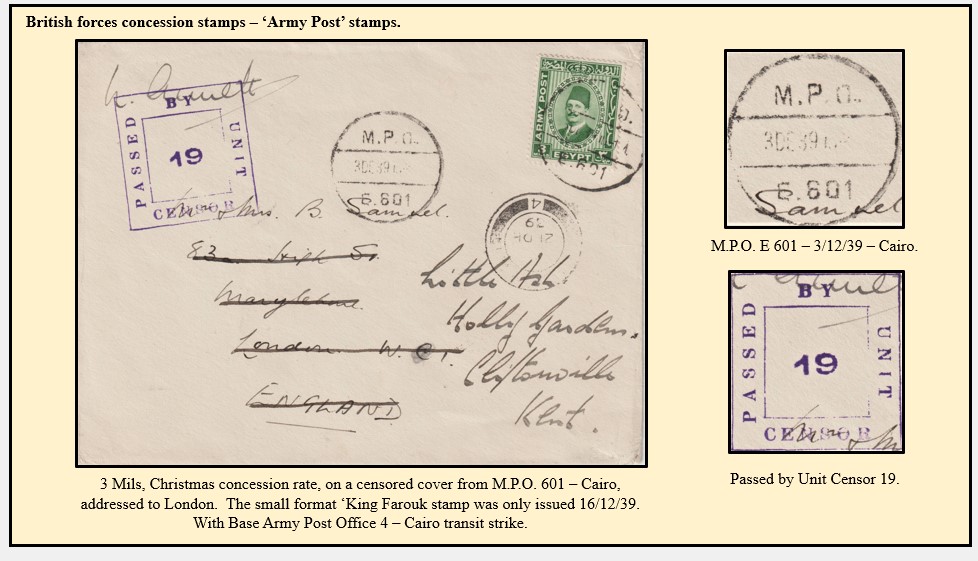 British forces concession stamps – ‘Army Post’ stamps.
PASSED BY UNIT CENSOR
19
M.P.O.
3 DE 39
E.601
ARMY POST
3 EGYPT
E.601
4
39
Mr & Mrs. B. Samuel.
83 High St.
Marylebone
London W.C.1.
ENGLAND
Little Ash
Holly Gardens.
Cliftonville
Kent.
3 Mils, Christmas concession rate, on a censored cover from M.P.O. 601 – Cairo,
addressed to London. The small format ‘King Farouk stamp was only issued 16/12/39.
With Base Army Post Office 4 – Cairo transit strike.
M.P.O.
3 DE 39
E.601
Samuel
M.P.O. E 601 – 3/12/39 – Cairo.
PASSED BY UNIT CENSOR
19
Passed by Unit Censor 19.